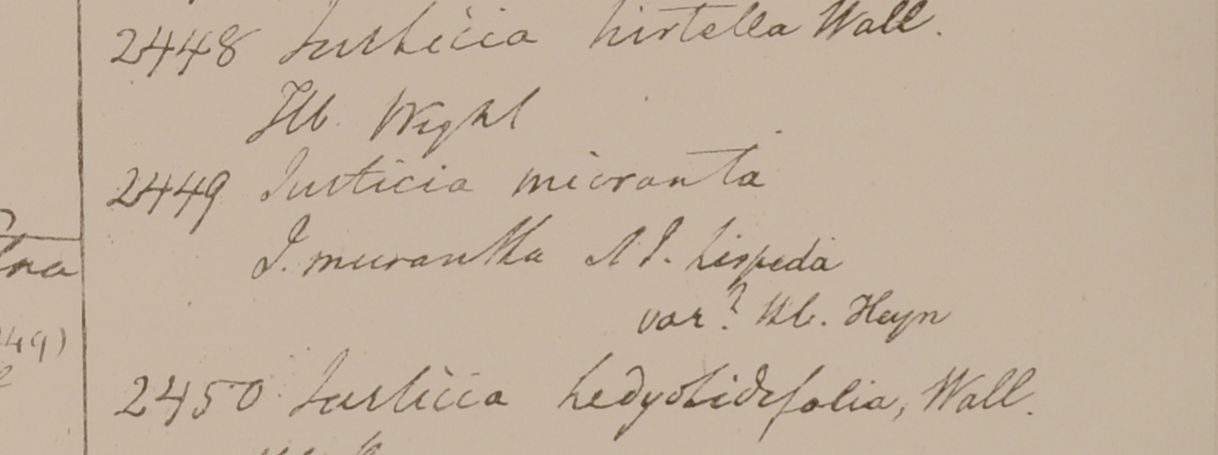 2448 Justicia hirtella Wall.
Hb. Wight
2449 Justicia micranta
J. micrantha & J. hispida
var? Hb. Heyn
2450 Justicia hedyotidifolia, Wall.
49)